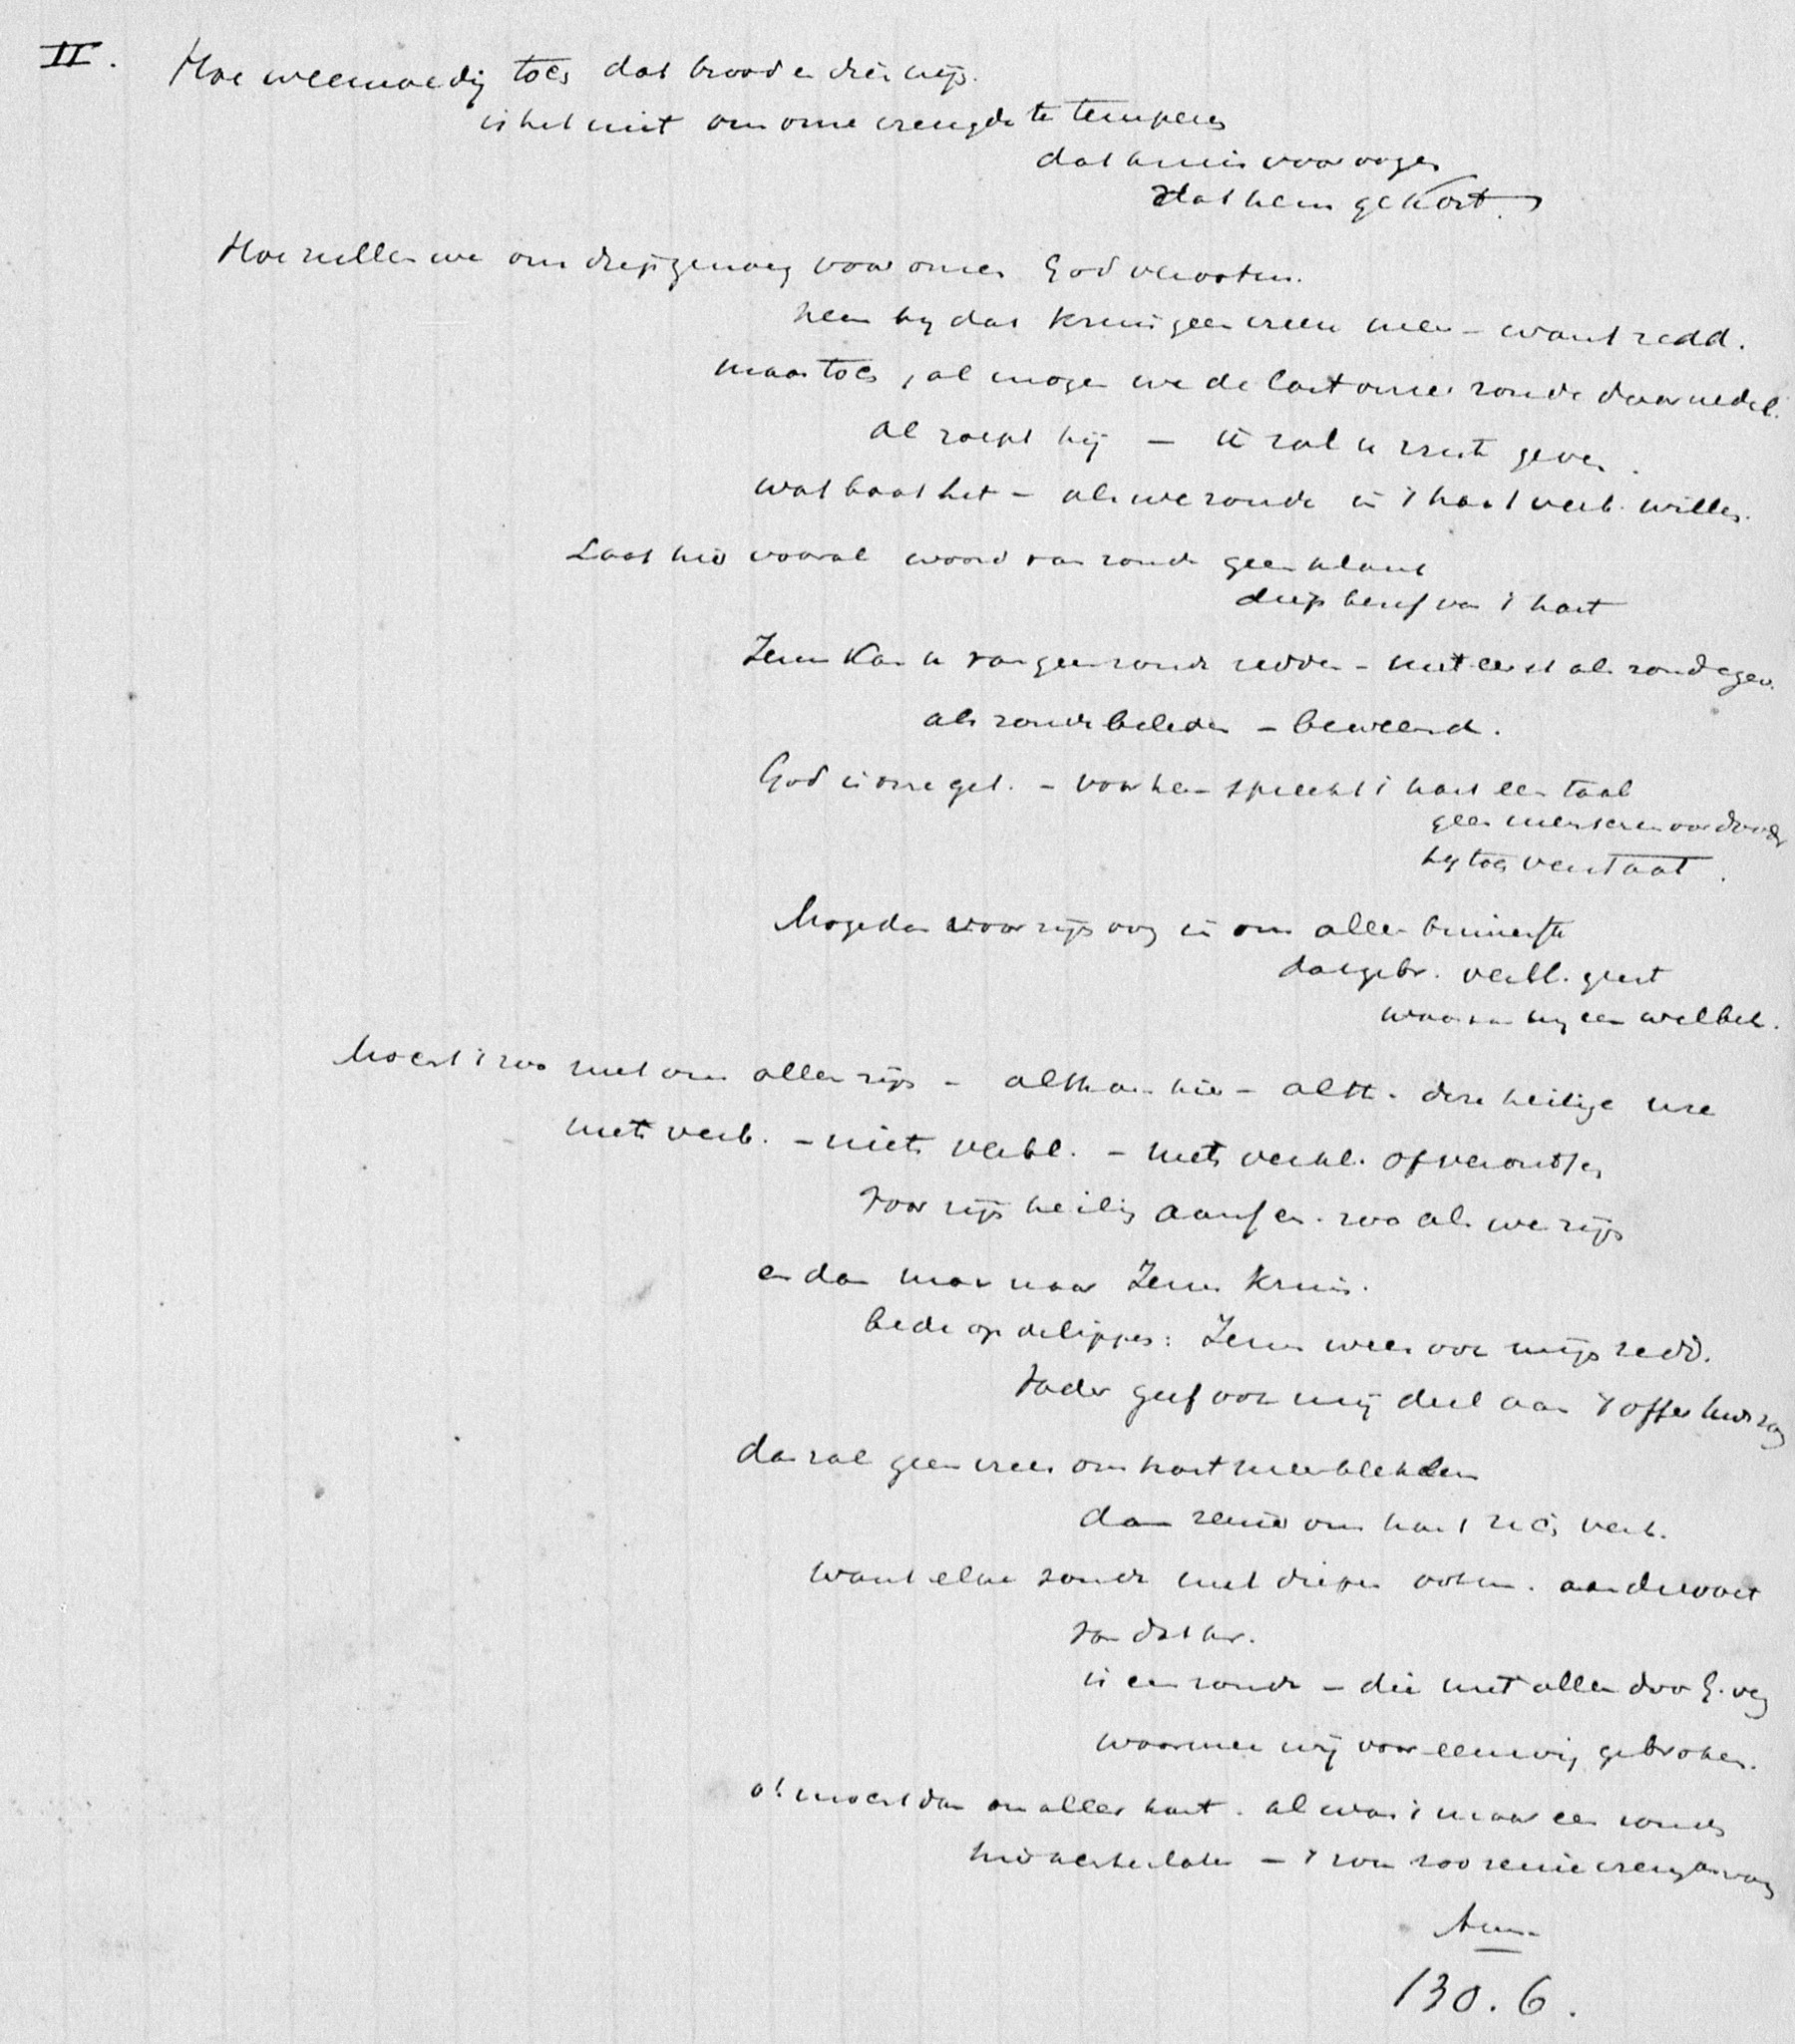 II. Hoe weemoedig toch dat brood en dien wijn.
is het niet om onze vreugde te temperen
dat kruis voor oogen
dat hem gekost.
Hoe zullen we ons diep genoeg voor onzen God verootm.
neen bij dat kruis geen vrees meer – want redd.
maar toch, al mogen we de last onzer zonde daar nederl.
al roept hij – ik zal u rust geven.
wat baat het – als we zonde in 't hart verb. willen.
Laat hier vooral woord van zonde geen klank
diep besef van 't hart
Jezus kan u van geen zonde redden – niet eerst als zonde gev.
als zonde beleden – beweend.
God is onze get. – voor hem spreekt 't hart een taal
geen menschenoor
hij toch verstaat.
Moge dan voor zijn oog in ons aller binnenste
daargebr. verbl. geest
waaraan hij een welbeh.
Mocht 't zoo met ons allen zijn – althans hier – alth. deze heilige ure
niets verb. – niets verbl. – niets verkl. of verontsch.
voor zijn heilig aansch. zoo als we zijn
en dan maar naar Jezus kruis.
bede op de lippen: Jezus wees ook mijn redd.
Vader geef ook mij deel aan 't offer
dan zal geen vrees ons hart meer beklemmen
dan zeker ons hart zich verb.
want elke zonde met diepen ootm. aan de voet
van dat kr.
is een zonde – die niet alleen door G. verg
waarmee wij voor eeuwig gebroken.
o! mocht dan ons aller hart. al was 't maar een zonde
hier achterlaten – 't zou zoo
Am.
130. 6.